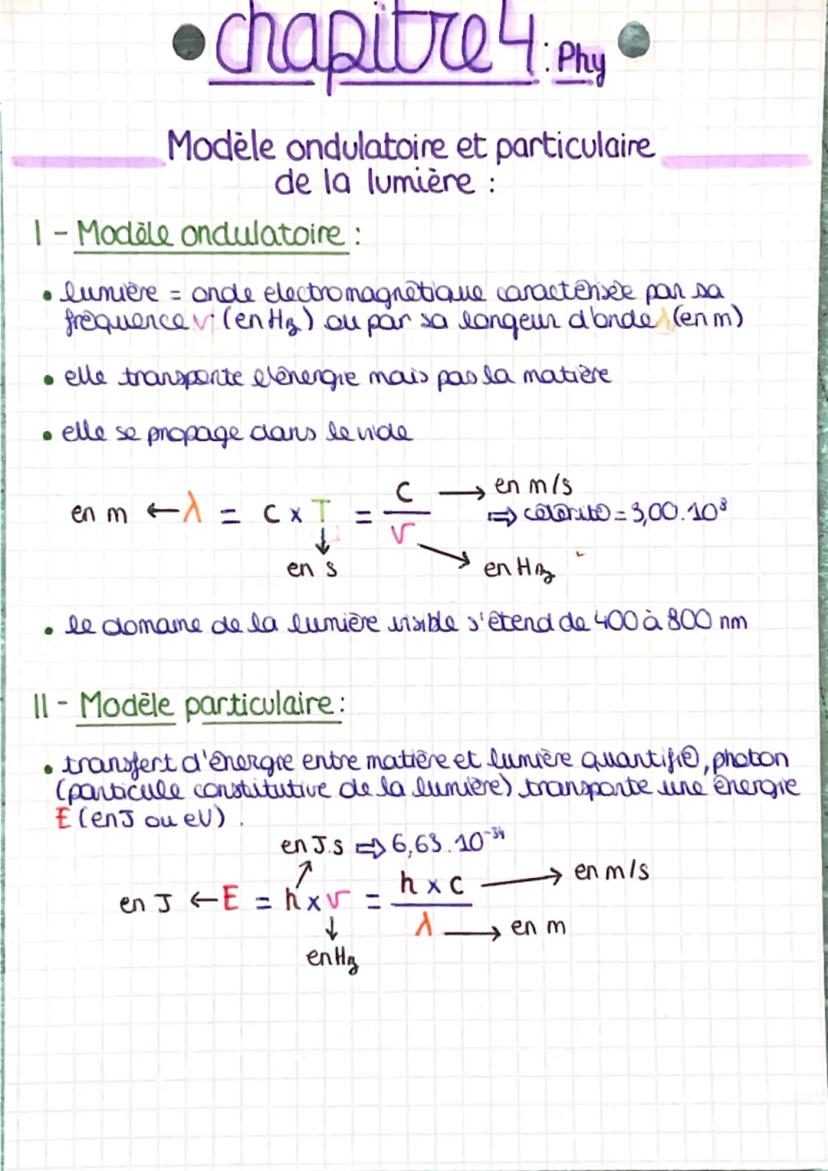 chapitre 4 : Phy
Modèle ondulatoire et particulaire
de la lumière :
I - Modèle ondulatoire :
• lumière = onde electromagnétique caractérisée par sa
fréquence ν (en Hz) ou par sa longeur d'onde λ (en m)
• elle transporte l'énergie mais pas la matière
• elle se propage dans le vide
en m ← λ = c × T = c/ν → en m/s
⇒ = 3,00.10⁸
en s
en Hz
• le domaine de la lumière visible s'étend de 400 à 800 nm
II - Modèle particulaire :
• transfert d'énergie entre matière et lumière quantifié, photon
(particule constitutive de la lumière) transporte une énergie
E (en J ou eV).
en J.s ⇒ 6,63.10⁻³⁴
en J ← E = h × ν = h × c / λ → en m/s
→ en m
en Hz